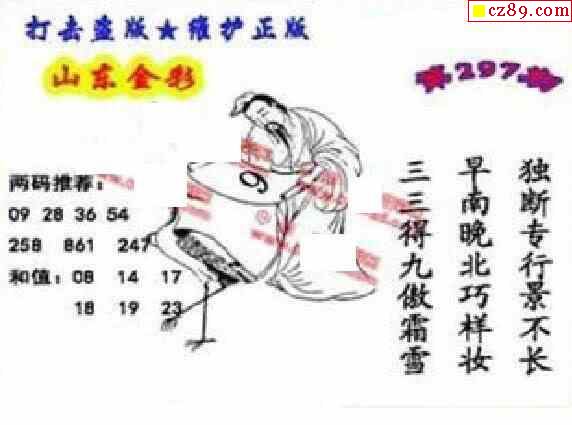 cz89.com
打击盗版★维护正版
山东金彩
第297期
两码推荐：
09 28 36 54
258 861 247
和值：08 14 17
18 19 23
9
独断专行景不长
早南晚北巧样妆
三三得九傲霜雪